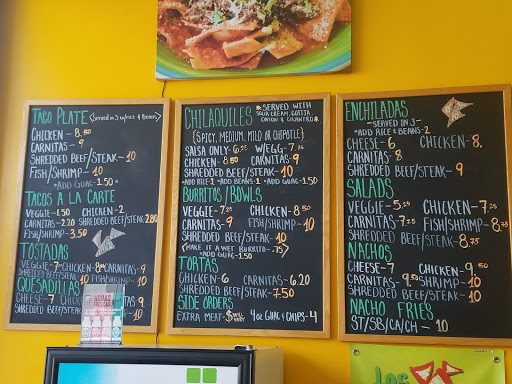 TACO PLATE (SERVED IN 3 W/RICE & BEANS)
CHICKEN - 8.50
CARNITAS - 9
SHREDDED BEEF/STEAK - 10
FISH/SHRIMP - 10
*ADD GUAC - 1.50*
TACOS A LA CARTE
VEGGIE - 1.50 CHICKEN - 2
CARNITAS - 2.20 SHREDDED BEEF/STEAK 2.80
FISH/SHRIMP - 3.50
TOSTADAS
VEGGIE - 7 CHICKEN - 8 CARNITAS - 9
SHREDDED BEEF/STEAK - 10
FISH/SHRIMP - 10
QUESADILLAS
CHEESE - 7 CARNITAS - 9
SHREDDED BEEF/STEAK - 10
CHILAQUILES *SERVED WITH
SOUR CREAM, COTIJA,
ONION & CILANTRO*
{SPICY, MEDIUM, MILD OR CHIPOTLE}
SALSA ONLY - 6. W/EGG - 7.
CHICKEN - 8.50 CARNITAS - 9
SHREDDED BEEF/STEAK - 10
*ADD RICE - 1 *ADD BEANS - 1 *ADD GUAC - 1.50
BURRITOS/BOWLS
VEGGIE - 7.25 CHICKEN - 8.50
CARNITAS - 9 FISH/SHRIMP - 10
SHREDDED BEEF/STEAK - 10
(MAKE IT A WET BURRITO - .75)
*ADD GUAC - 1.50
TORTAS
CHICKEN - 6 CARNITAS - 6.20
SHREDDED BEEF/STEAK - 7.50
SIDE ORDERS
EXTRA MEAT - 4oz GUAC & CHIPS - 4
ENCHILADAS
- SERVED IN 3 -
*ADD RICE & BEANS - 2
CHEESE - 6 CHICKEN - 8.
CARNITAS - 8
SHREDDED BEEF/STEAK - 9
SALADS
VEGGIE - 5.25 CHICKEN - 7.25
CARNITAS - 7.25 FISH/SHRIMP - 8.75
SHREDDED BEEF/STEAK - 8.75
NACHOS
CHEESE - 7 CHICKEN - 9.50
CARNITAS - 9.50 FISH/SHRIMP - 10
SHREDDED BEEF/STEAK - 10
NACHO FRIES
ST/SB/CA/CH - 10
AGUAS
Los